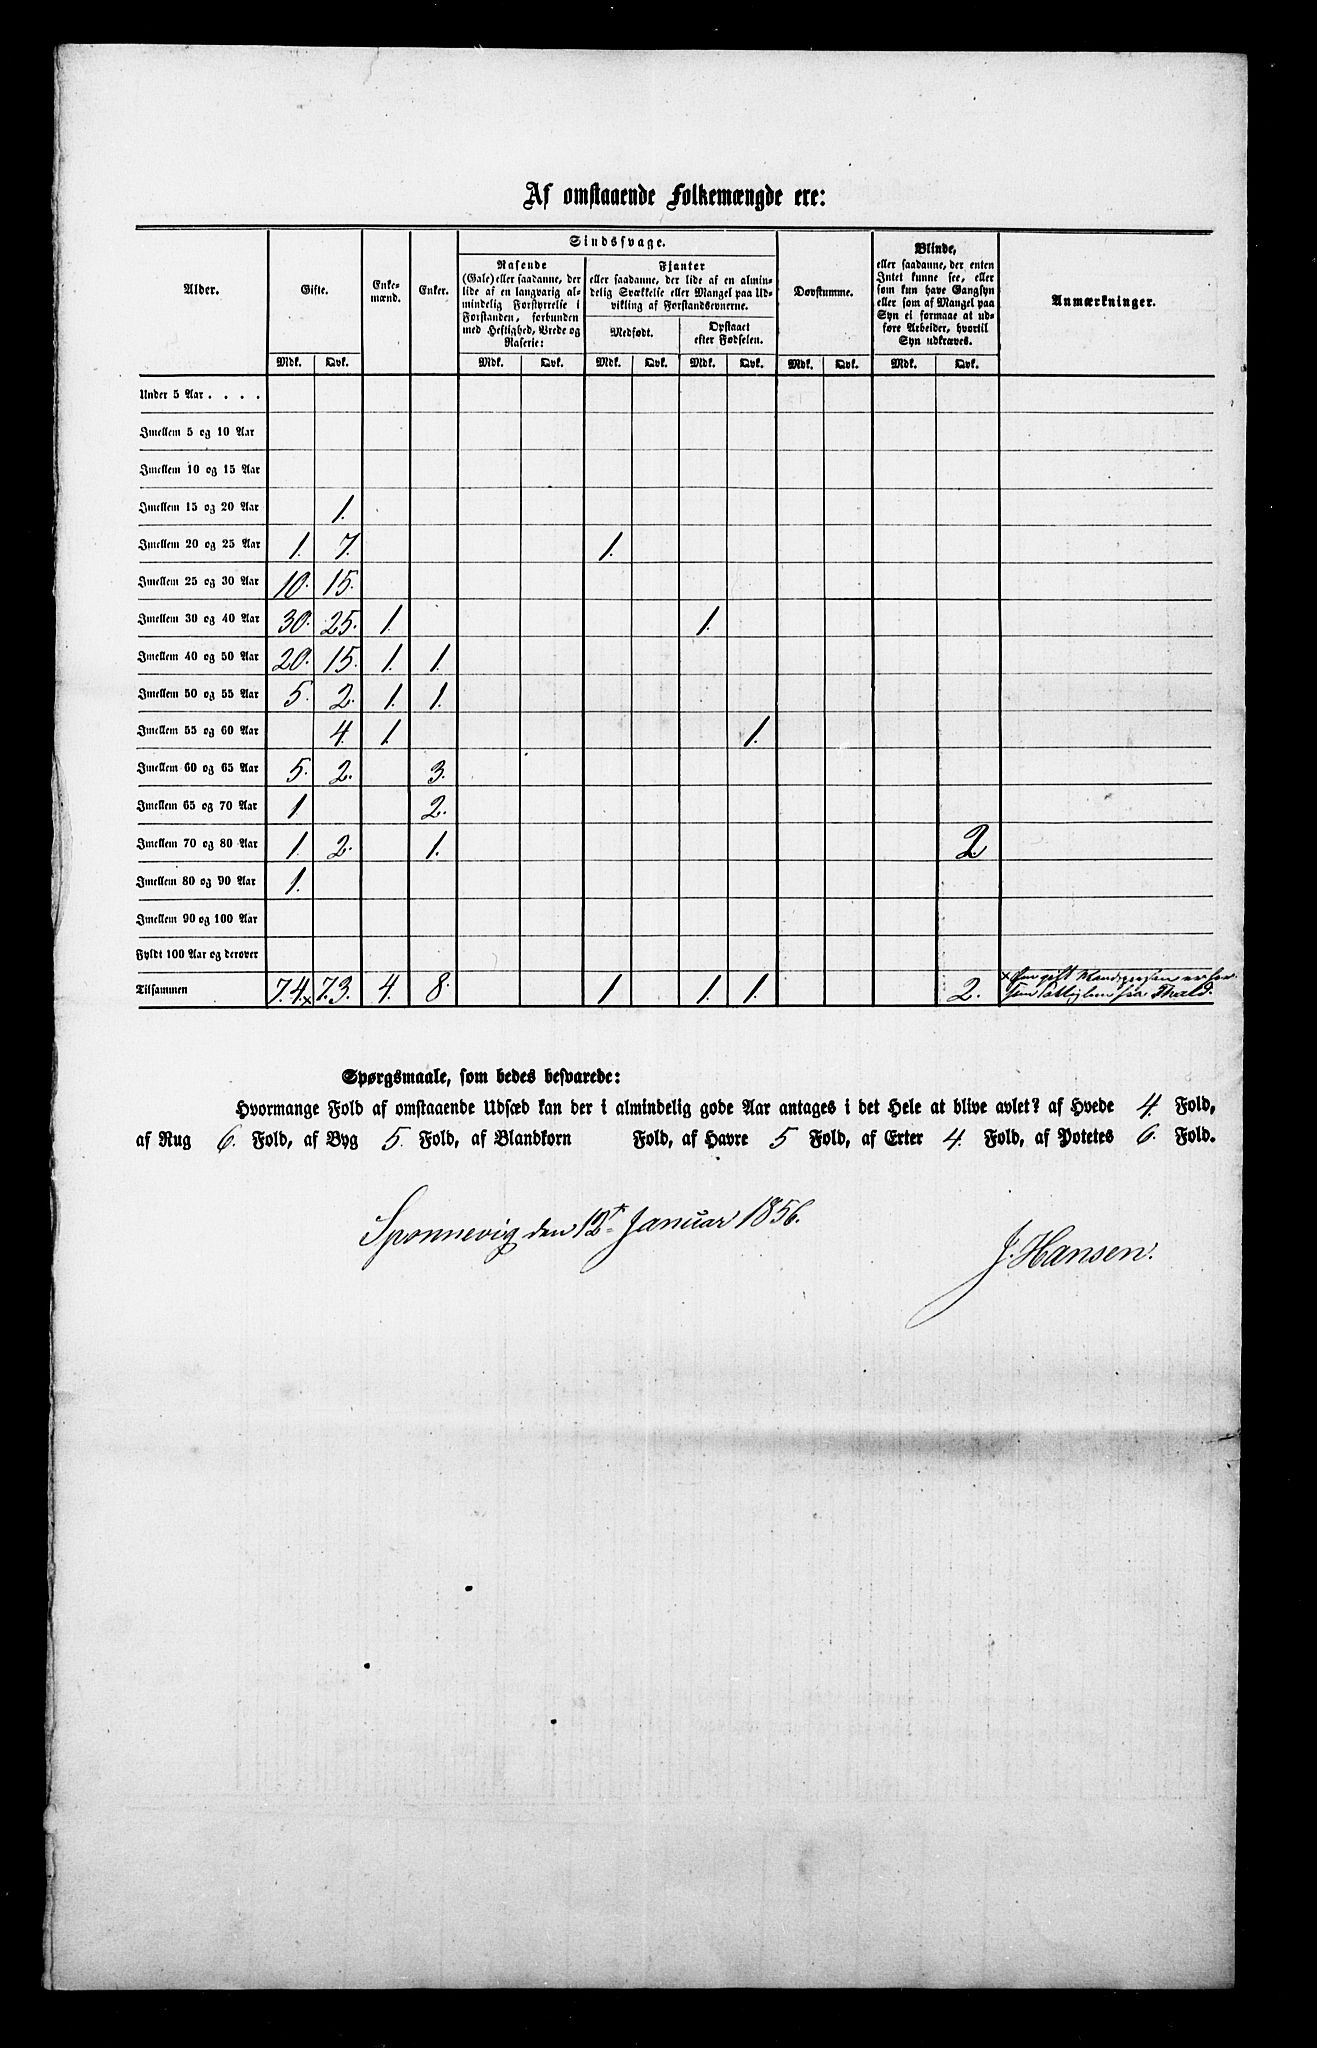 Af omstaaende Folkemængde ere:
Alder. Gifte. Enke-mænd. Enker. Sindssvage. Døvstumme. Blinde, Anmærkninger.
Rasende
(Gale) eller saadanne, der
lide af en langvarig al-
mindelig Forstyrrelse i
Forstanden, forbunden
med Heftighed, Vrede og
Raserie:
Fjanter
eller saadanne, der lide af en almin-
delig Svækkelse eller Mangel paa Ud-
vikling af Forstandsevnerne.
Medfødt.
Opstaaet
efter Fødselen.
eller saadanne, der enten
Intet kunne see, eller
som kun have Gangsyn
eller som af Mangel paa
Syn ei formaae at ud-
føre Arbeider, hvortil
Syn udkræves.
Mdk. Qvk. Mdk. Qvk. Mdk. Qvk. Mdk. Qvk. Mdk. Qvk. Mdk. Qvk.
Under 5 Aar . . . .
Imellem 5 og 10 Aar
Imellem 10 og 15 Aar
Imellem 15 og 20 Aar 1.
Imellem 20 og 25 Aar 1. 7. 1.
Imellem 25 og 30 Aar 10. 15.
Imellem 30 og 40 Aar 30. 25. 1. 1.
Imellem 40 og 50 Aar 20. 15. 1. 1.
Imellem 50 og 55 Aar 5. 2. 1. 1.
Imellem 55 og 60 Aar 4. 1. 1.
Imellem 60 og 65 Aar 5. 2. 3.
Imellem 65 og 70 Aar 1 2.
Imellem 70 og 80 Aar 1. 2. 1. 2
Imellem 80 og 90 Aar 1.
Imellem 90 og 100 Aar
Fyldt 100 Aar og derover
Tilsammen 74. x 73. 4. 8. 1 1. 1. 2. x gift
fra
Spørgsmaale, som bedes besvarede:
Hvormange Fold af omstaaende Udsæd kan der i almindelig gode Aar antages i det Hele at blive avlet? af Hvede 4. Fold,
af Rug 6. Fold, af Byg 5. Fold, af Blandkorn Fold, af Havre 5 Fold, af Erter 4. Fold, af Potetes 6. Fold.
Spønnevig den 12te Januar 1856.
J. Hansen.